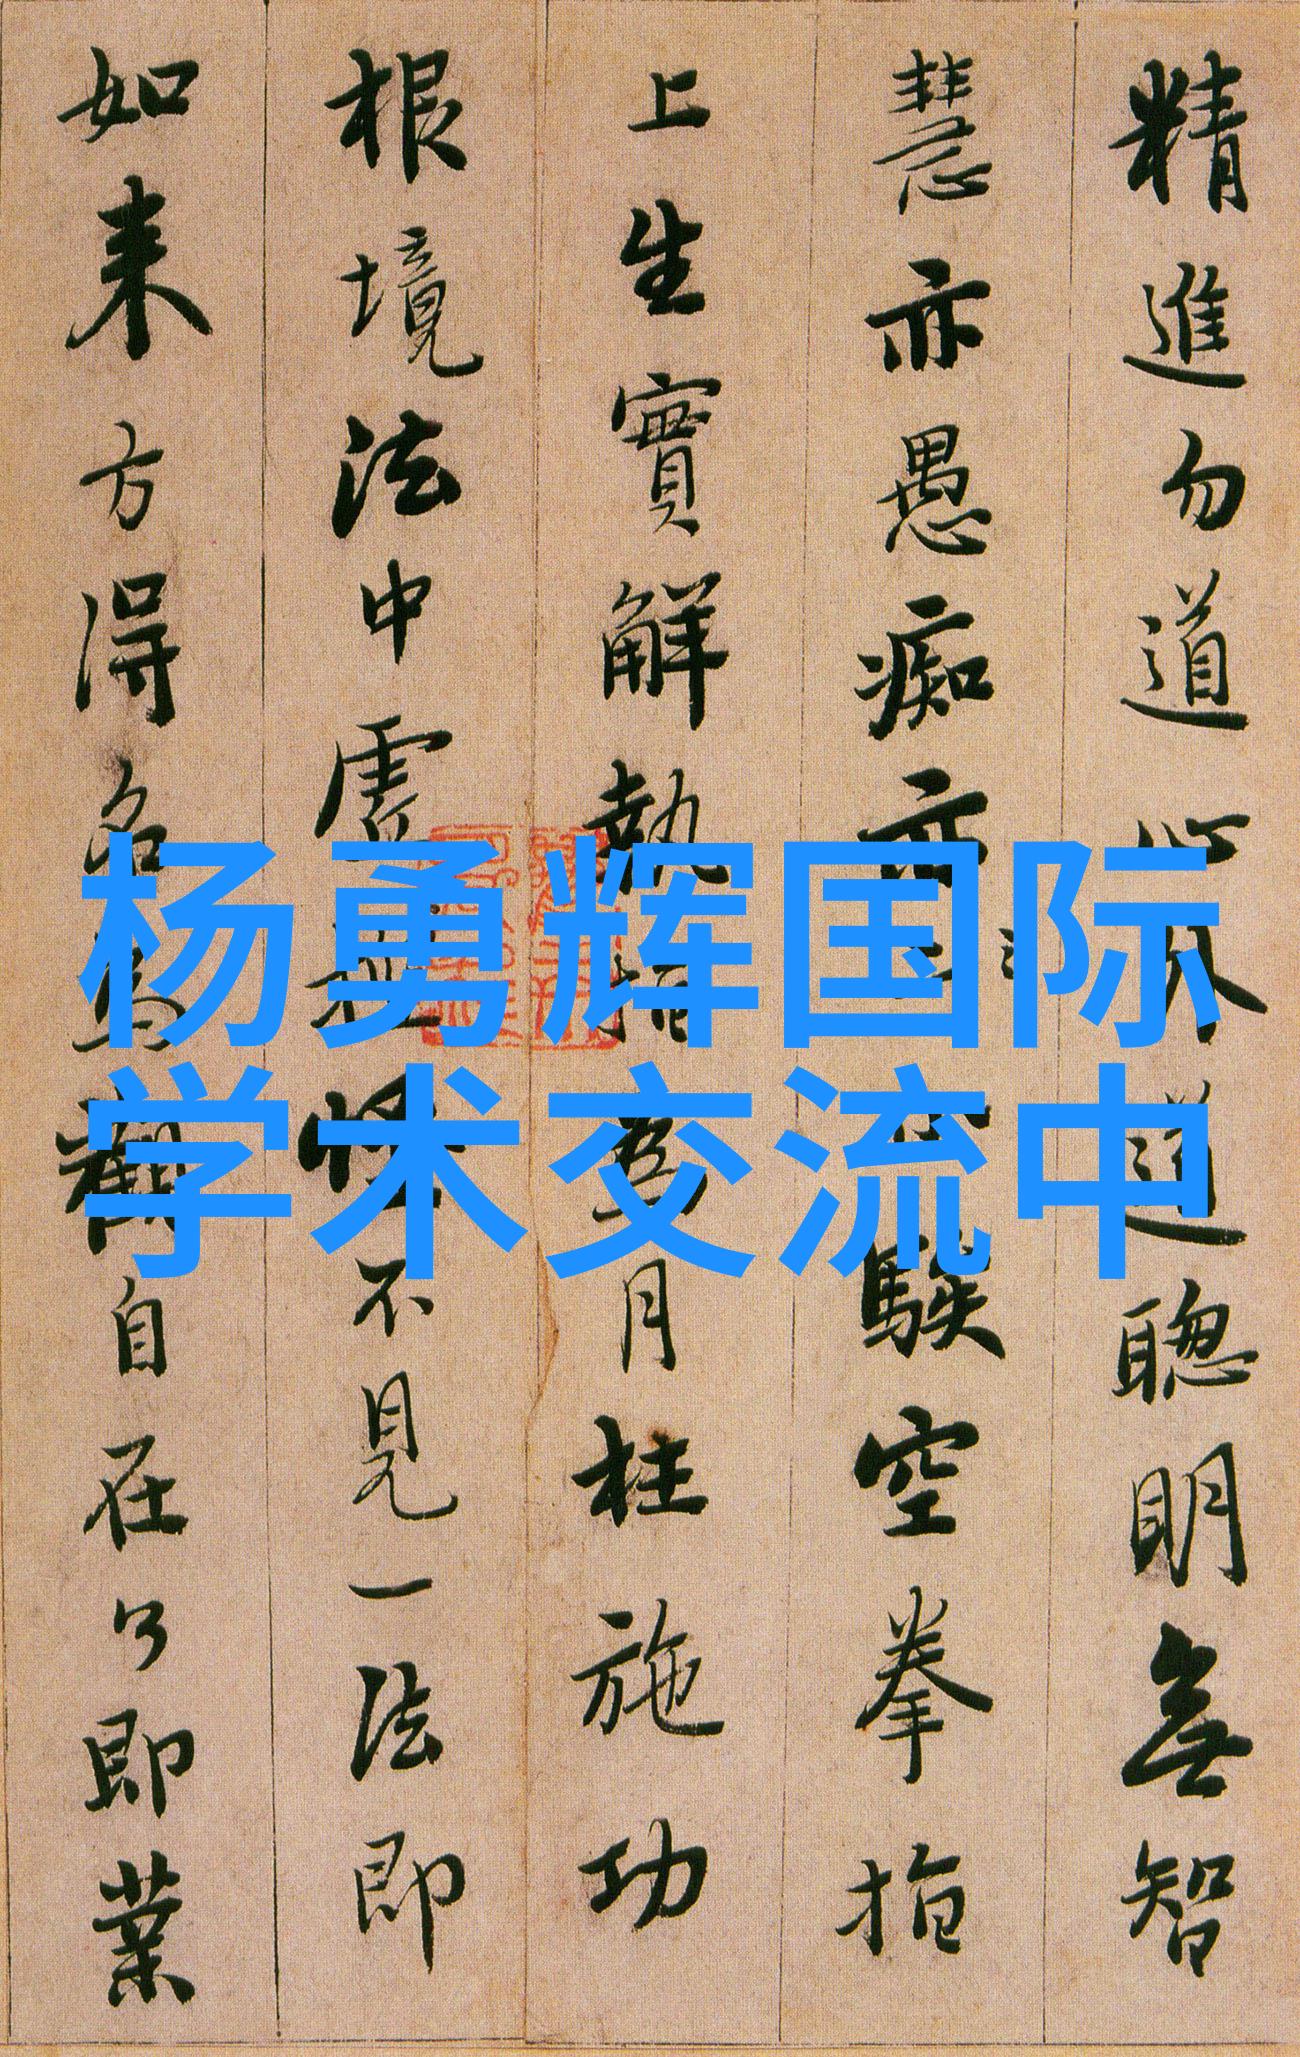 精進勿道心人道聰明無智
慧亦愚癡亦騃空拳指
上生實解執指為月枉施功
根境法中虛怪不見一法即
如來方得名為觀自在了即業
杨勇辉国际
学术交流中